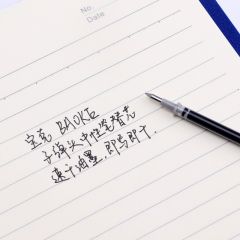 No.
Date
宝克 BAOKE
子弹头中性笔替芯
速干油墨,即写即干.